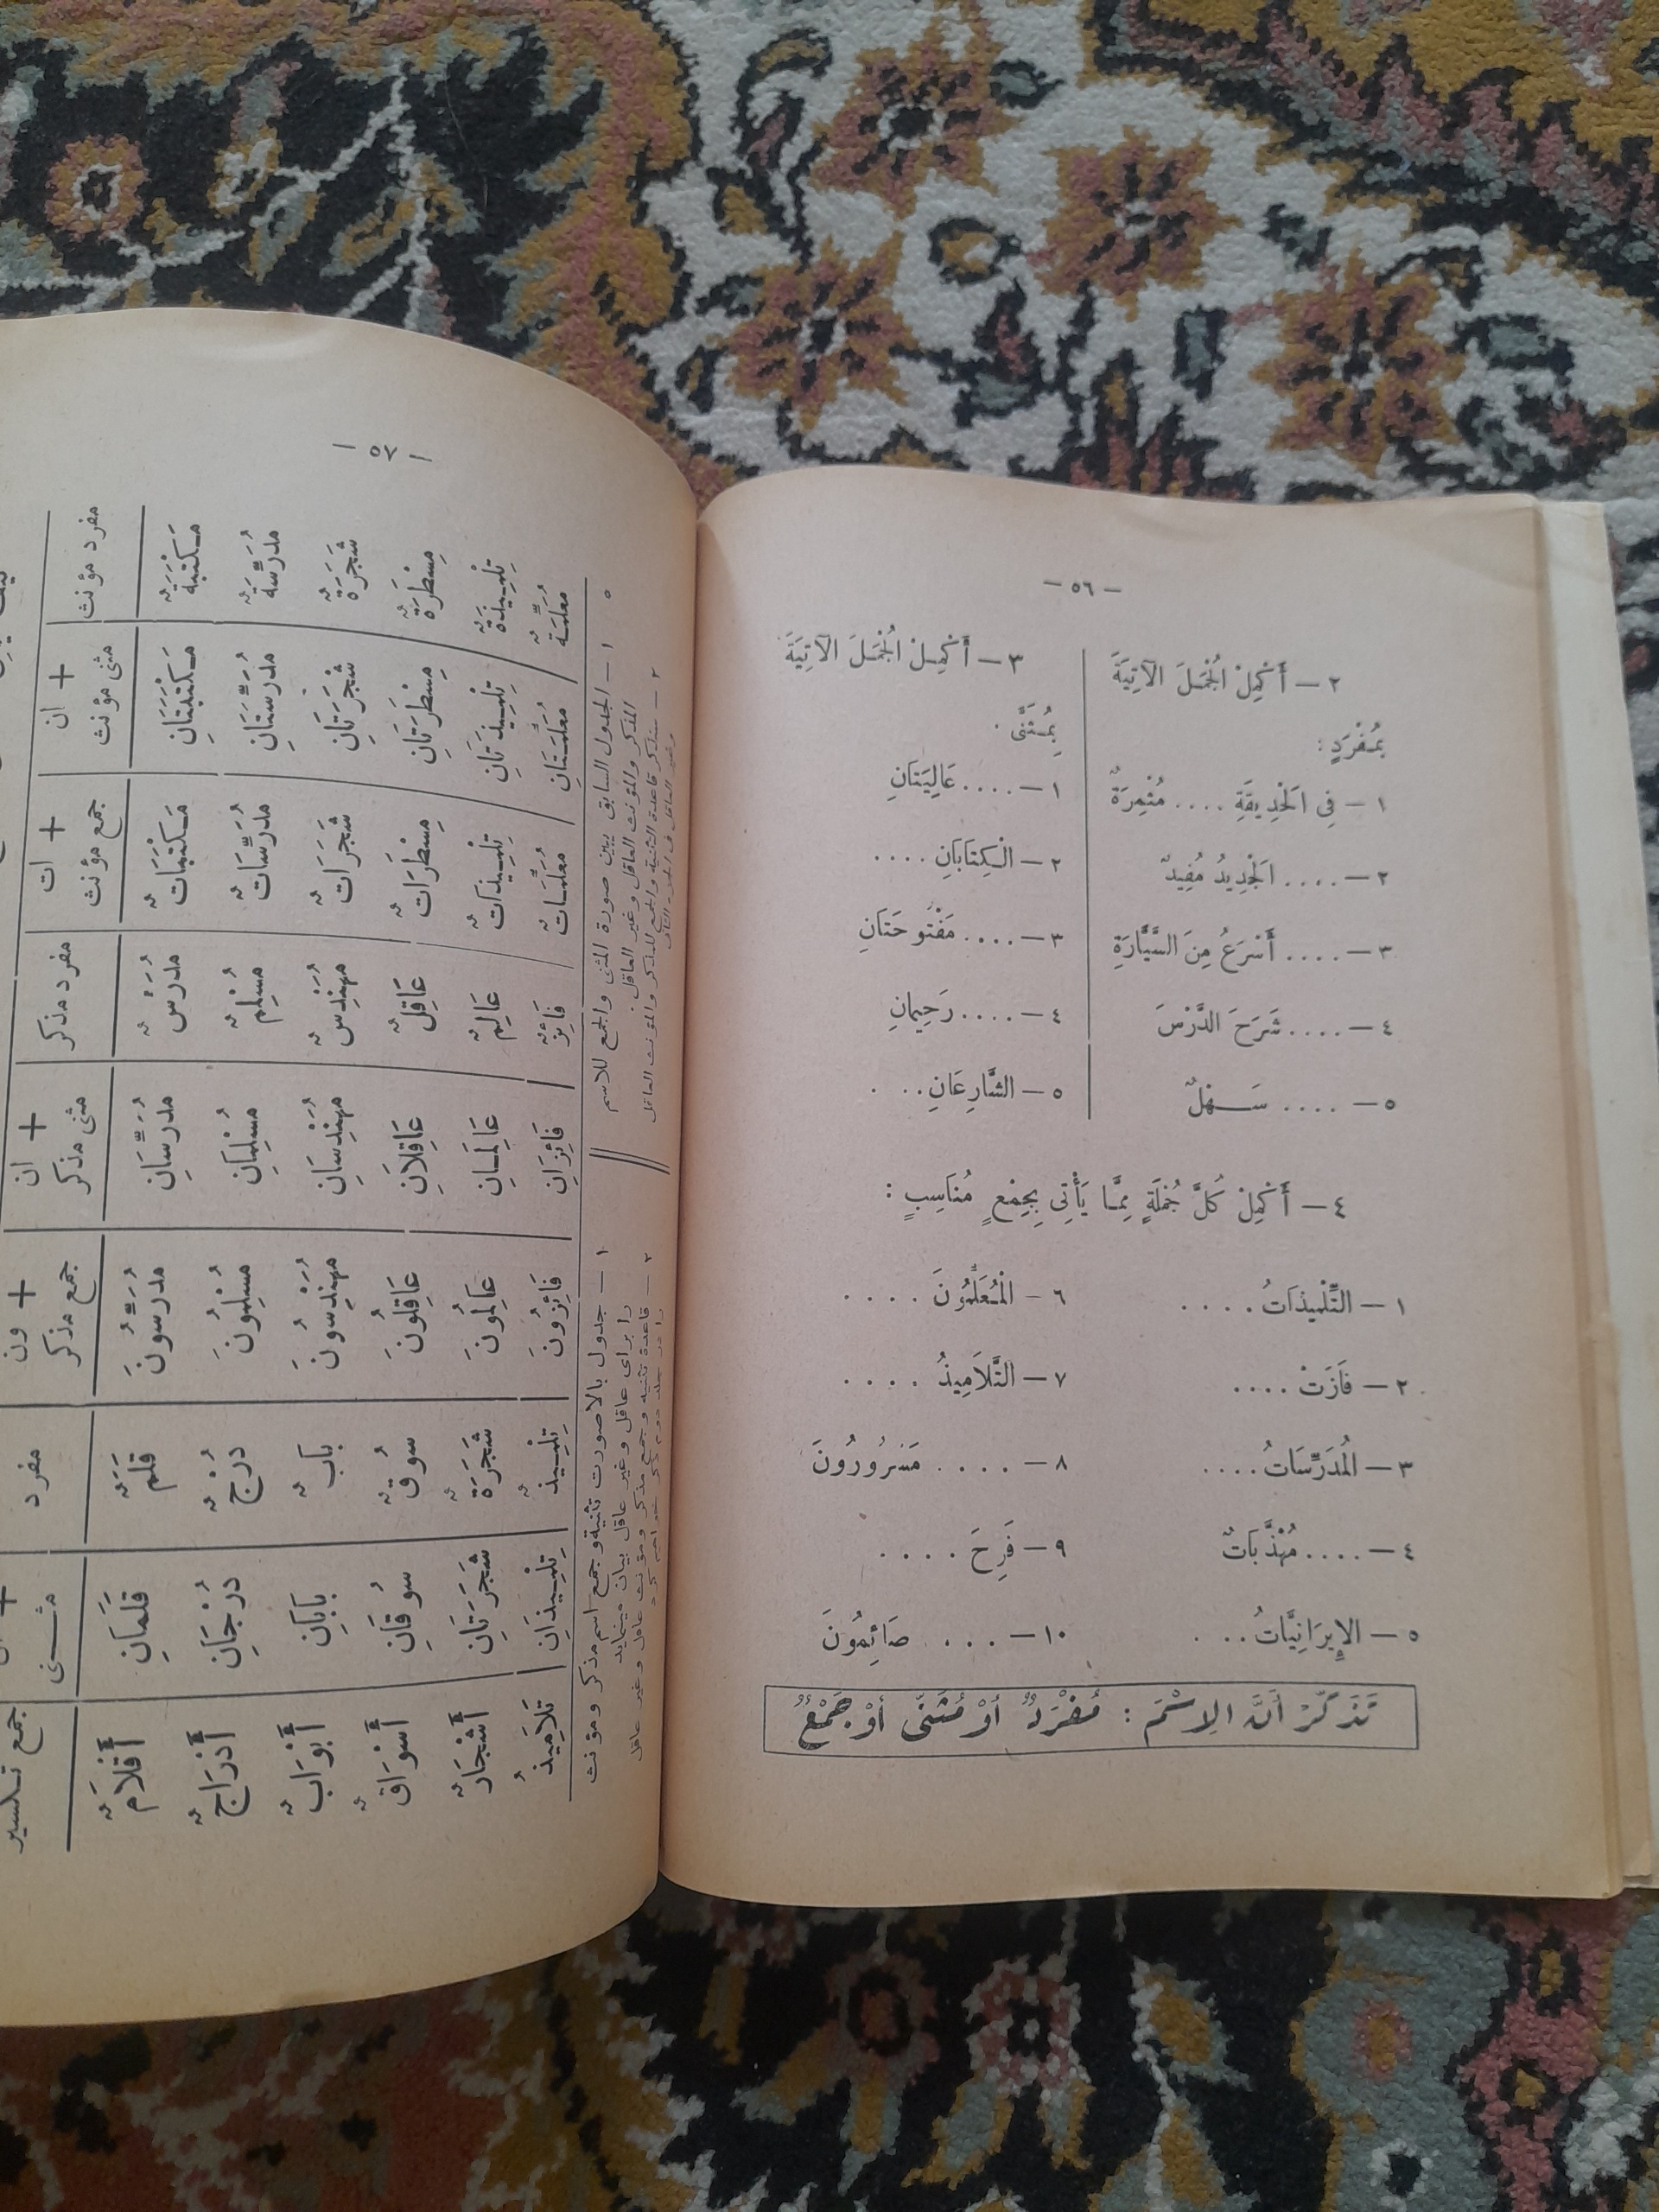 — ٥٦ —
٢ — أَكْمِلْ الْجُمَلَ الآتِيَةَ
بِمُفْرَدٍ :
١ — فِي الْحَدِيقَةِ .... مُثْمِرَةٌ
٢ — .... الْجَدِيدُ مُفِيدٌ
٣ — .... أَسْرَعُ مِنَ السَّيَّارَةِ
٤ — .... شَرَحَ الدَّرْسَ
٥ — .... سَهْلٌ
٣ — أَكْمِلْ الْجُمَلَ الآتِيَةَ
بِمُثَنًّى .
١ — .... عَالِيَتَانِ
٢ — الْكِتَابَانِ ....
٣ — .... مَفْتُوحَتَانِ
٤ — .... رَحِيمَانِ
٥ — الشَّارِعَانِ ...
٤ — أَكْمِلْ كُلَّ جُمْلَةٍ مِمَّا يَأْتِى بِجَمْعٍ مُنَاسِبٍ :
١ — التِّلْمِيذَاتُ ....
٢ — فَازَتْ ....
٣ — الْمُدَرِّسَاتُ ....
٤ — .... مُهَذَّبَاتٌ
٥ — الإِيرَانِيَّاتُ ...
٦ — الْمُعَلِّمُونَ ....
٧ — التَّلَامِيذُ ....
٨ — .... مَسْرُورُونَ
٩ — فَرِحَ ....
١٠ — .... صَائِمُونَ
تَذَكَّرْ أَنَّ الِاسْمَ : مُفْرَدٌ أَوْ مُثَنَّى أَوْ جَمْعٌ
— ٥٧ —
مفرد مؤنث
مثنى مؤنث + ان
جمع مؤنث + ات
مفرد مذكر
مثنى مذكر + ان
جمع مذكر + ون
مفرد
مثنى
جمع تكسير
مَكْتَبَةٌ مَكْتَبَتَانِ مَكْتَبَاتٌ مُدَرِّسٌ مُدَرِّسَانِ مُدَرِّسُونَ قَلَمٌ قَلَمَانِ أَقْلَامٌ
مُدَرِّسَةٌ مُدَرِّسَتَانِ مُدَرِّسَاتٌ مُسْلِمٌ مُسْلِمَانِ مُسْلِمُونَ دُرْجٌ دُرْجَانِ أَدْرَاجٌ
شَجَرَةٌ شَجَرَتَانِ شَجَرَاتٌ مُهَنْدِسٌ مُهَنْدِسَانِ مُهَنْدِسُونَ بَابٌ بَابَانِ أَبْوَابٌ
مِسْطَرَةٌ مِسْطَرَتَانِ مِسْطَرَاتٌ عَاقِلٌ عَاقِلَانِ عَاقِلُونَ سُوقٌ سُوقَانِ أَسْوَاقٌ
تِلْمِيذَةٌ تِلْمِيذَتَانِ تِلْمِيذَاتٌ عَالِمٌ عَالِمَانِ عَالِمُونَ شَجَرَةٌ شَجَرَتَانِ أَشْجَارٌ
مُعَلِّمَةٌ مُعَلِّمَتَانِ مُعَلِّمَاتٌ فَائِزٌ فَائِزَانِ فَائِزُونَ تِلْمِيذٌ تِلْمِيذَانِ تَلَامِيذُ
١ — الجدول السابق يبين صورة المثنى والجمع للاسم
المذكر والمؤنث العاقل وغير العاقل .
٢ — سنذكر قاعدة التثنية والجمع للمذكر والمؤنث العاقل
١ — جدول بالا صورت تثنيه و جمع اسم مذكر و مؤنث
را براى عاقل وغير عاقل بيان مينمايد
٢ — قاعدة تثنيه و جمع مذكر و مؤنث عاقل و غير عاقل